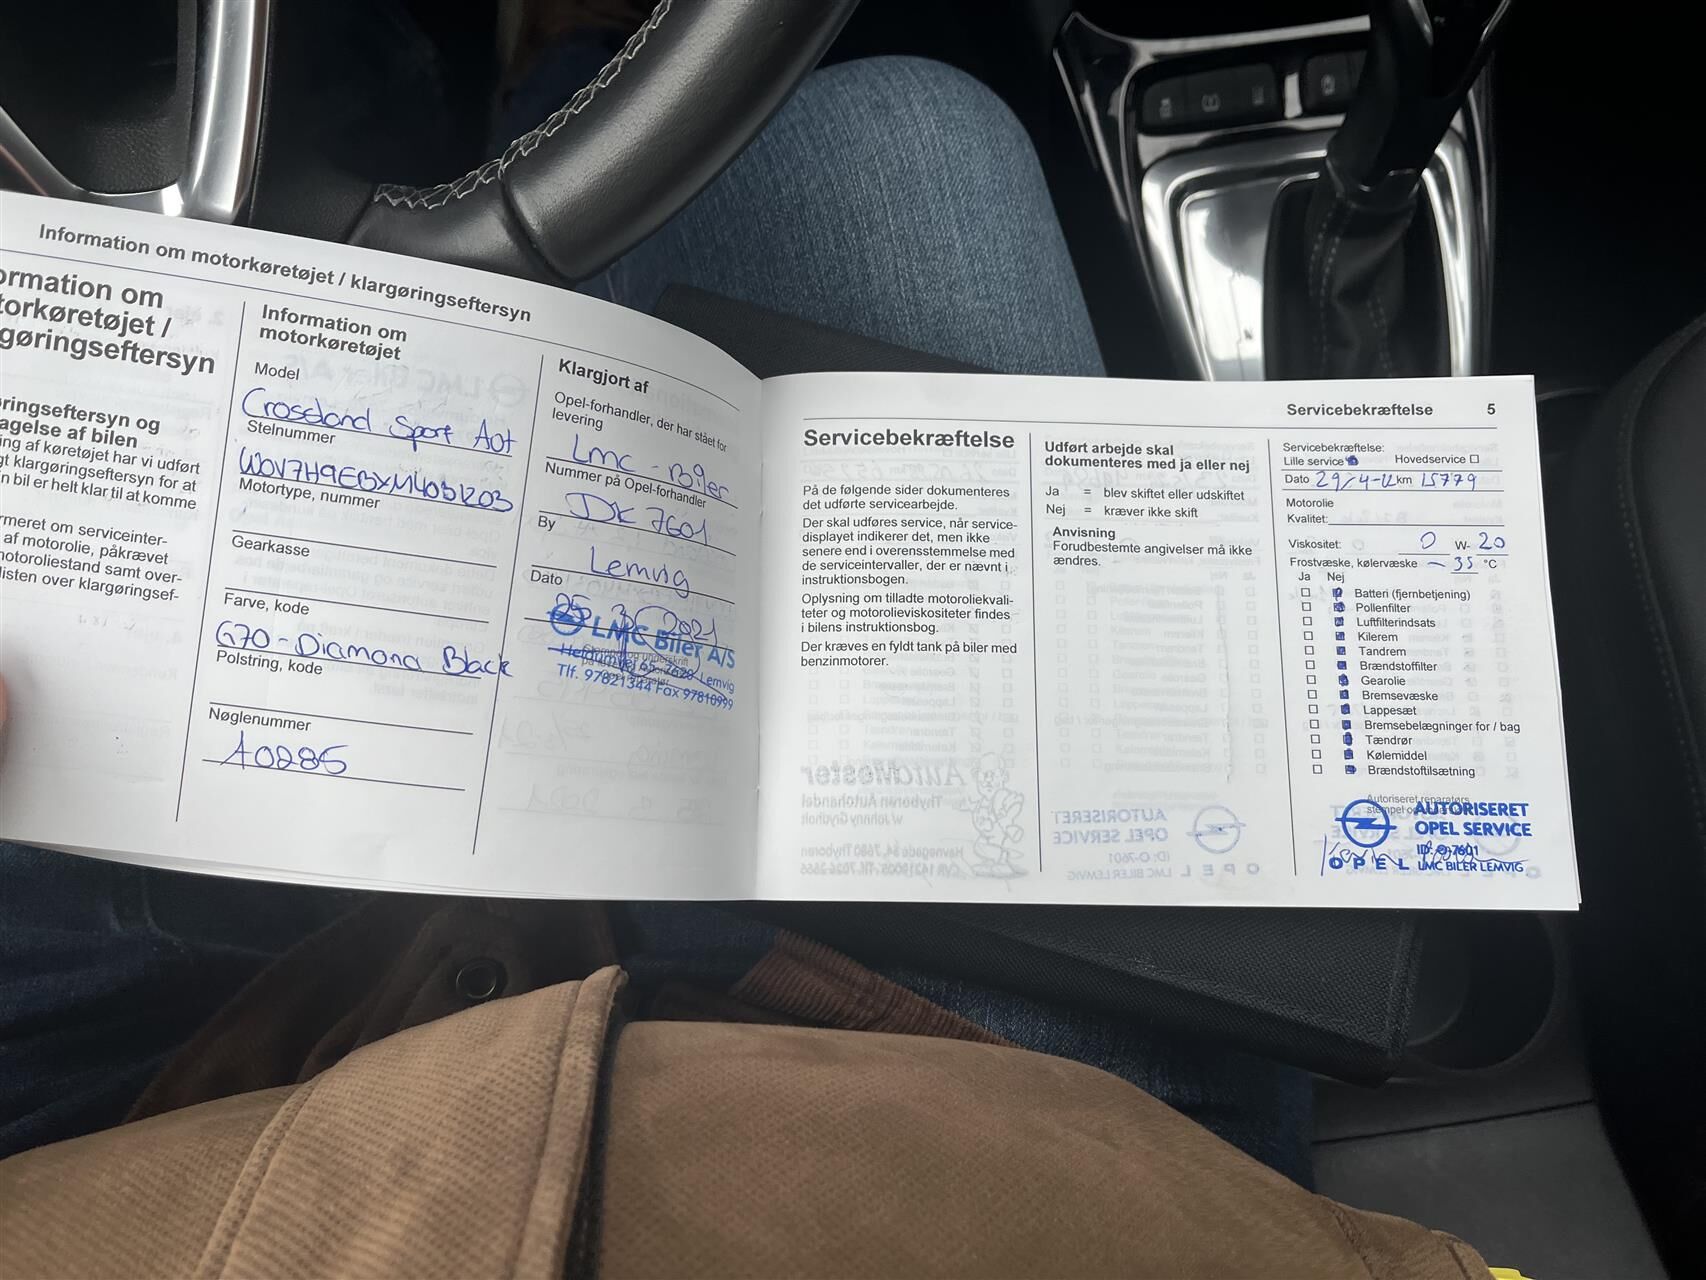 Information om motorkøretøjet / klargøringseftersyn
ormation om
torkøretøjet /
gøringseftersyn
øringseftersyn og
agelse af bilen
ing af køretøjet har vi udført
gt klargøringseftersyn for at
n bil er helt klar til at komme
rmeret om serviceinter-
af motorolie, påkrævet
motoroliestand samt over-
listen over klargøringsef-
Information om
motorkøretøjet
Model
Crossland Sport Aut
Stelnummer
Motortype, nummer
Gearkasse
Farve, kode
G70 - Diamond Black
Polstring, kode
Nøglenummer
A0285
Klargjort af
Opel-forhandler, der har stået for
levering
Lmc - Biler
Nummer på Opel-forhandler
DK 7601
By
Lemvig
Dato
25 3 2021
LMC Biler A/S
7620 Lemvig
Tlf. 97821344 Fax 97810999
Servicebekræftelse 5
Servicebekræftelse
På de følgende sider dokumenteres
det udførte servicearbejde.
Der skal udføres service, når service-
displayet indikerer det, men ikke
senere end i overensstemmelse med
de serviceintervaller, der er nævnt i
instruktionsbogen.
Oplysning om tilladte motoroliekvali-
teter og motorolieviskositeter findes
i bilens instruktionsbog.
Der kræves en fyldt tank på biler med
benzinmotorer.
Udført arbejde skal
dokumenteres med ja eller nej
Ja = blev skiftet eller udskiftet
Nej = kræver ikke skift
Anvisning
Forudbestemte angivelser må ikke
ændres.
Servicebekræftelse:
Lille service Hovedservice
Dato 29/4-22 km 15779
Motorolie
Kvalitet:
Viskositet: 0 W- 20
Frostvæske, kølervæske - 35 °C
Ja Nej
Batteri (fjernbetjening)
Pollenfilter
Luftfilterindsats
Kilerem
Tandrem
Brændstoffilter
Gearolie
Bremsevæske
Lappesæt
Bremsebelægninger for / bag
Tændrør
Kølemiddel
Brændstoftilsætning
Autoriseret reparatørs
AUTORISERET
OPEL SERVICE
ID: O-7601
OPEL LMC BILER LEMVIG